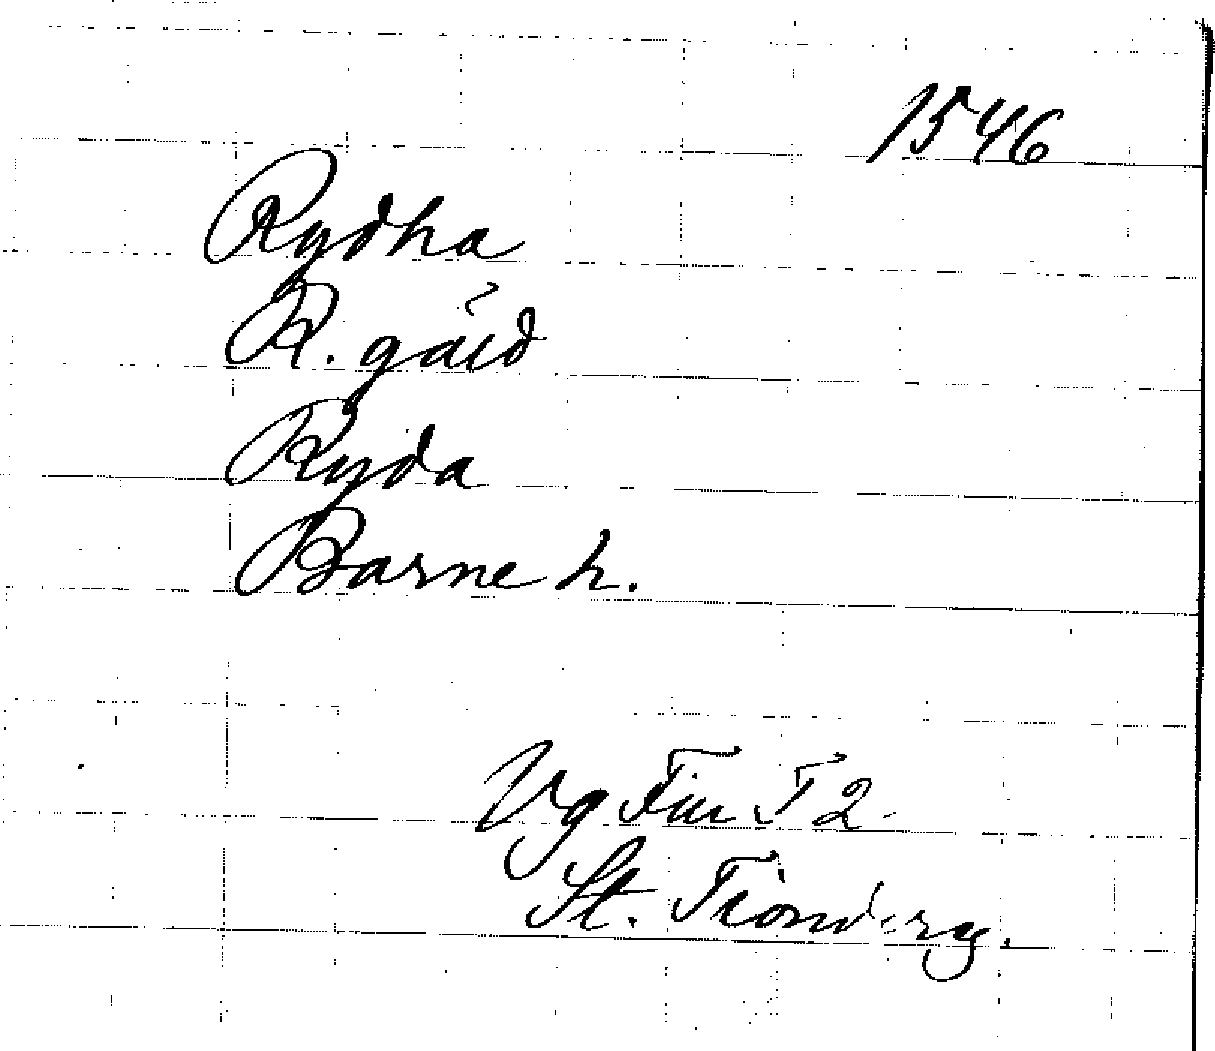 1546
Rydha
R. gård
Ryda
Barne h.
Vg T 2
St. Tiondereg.